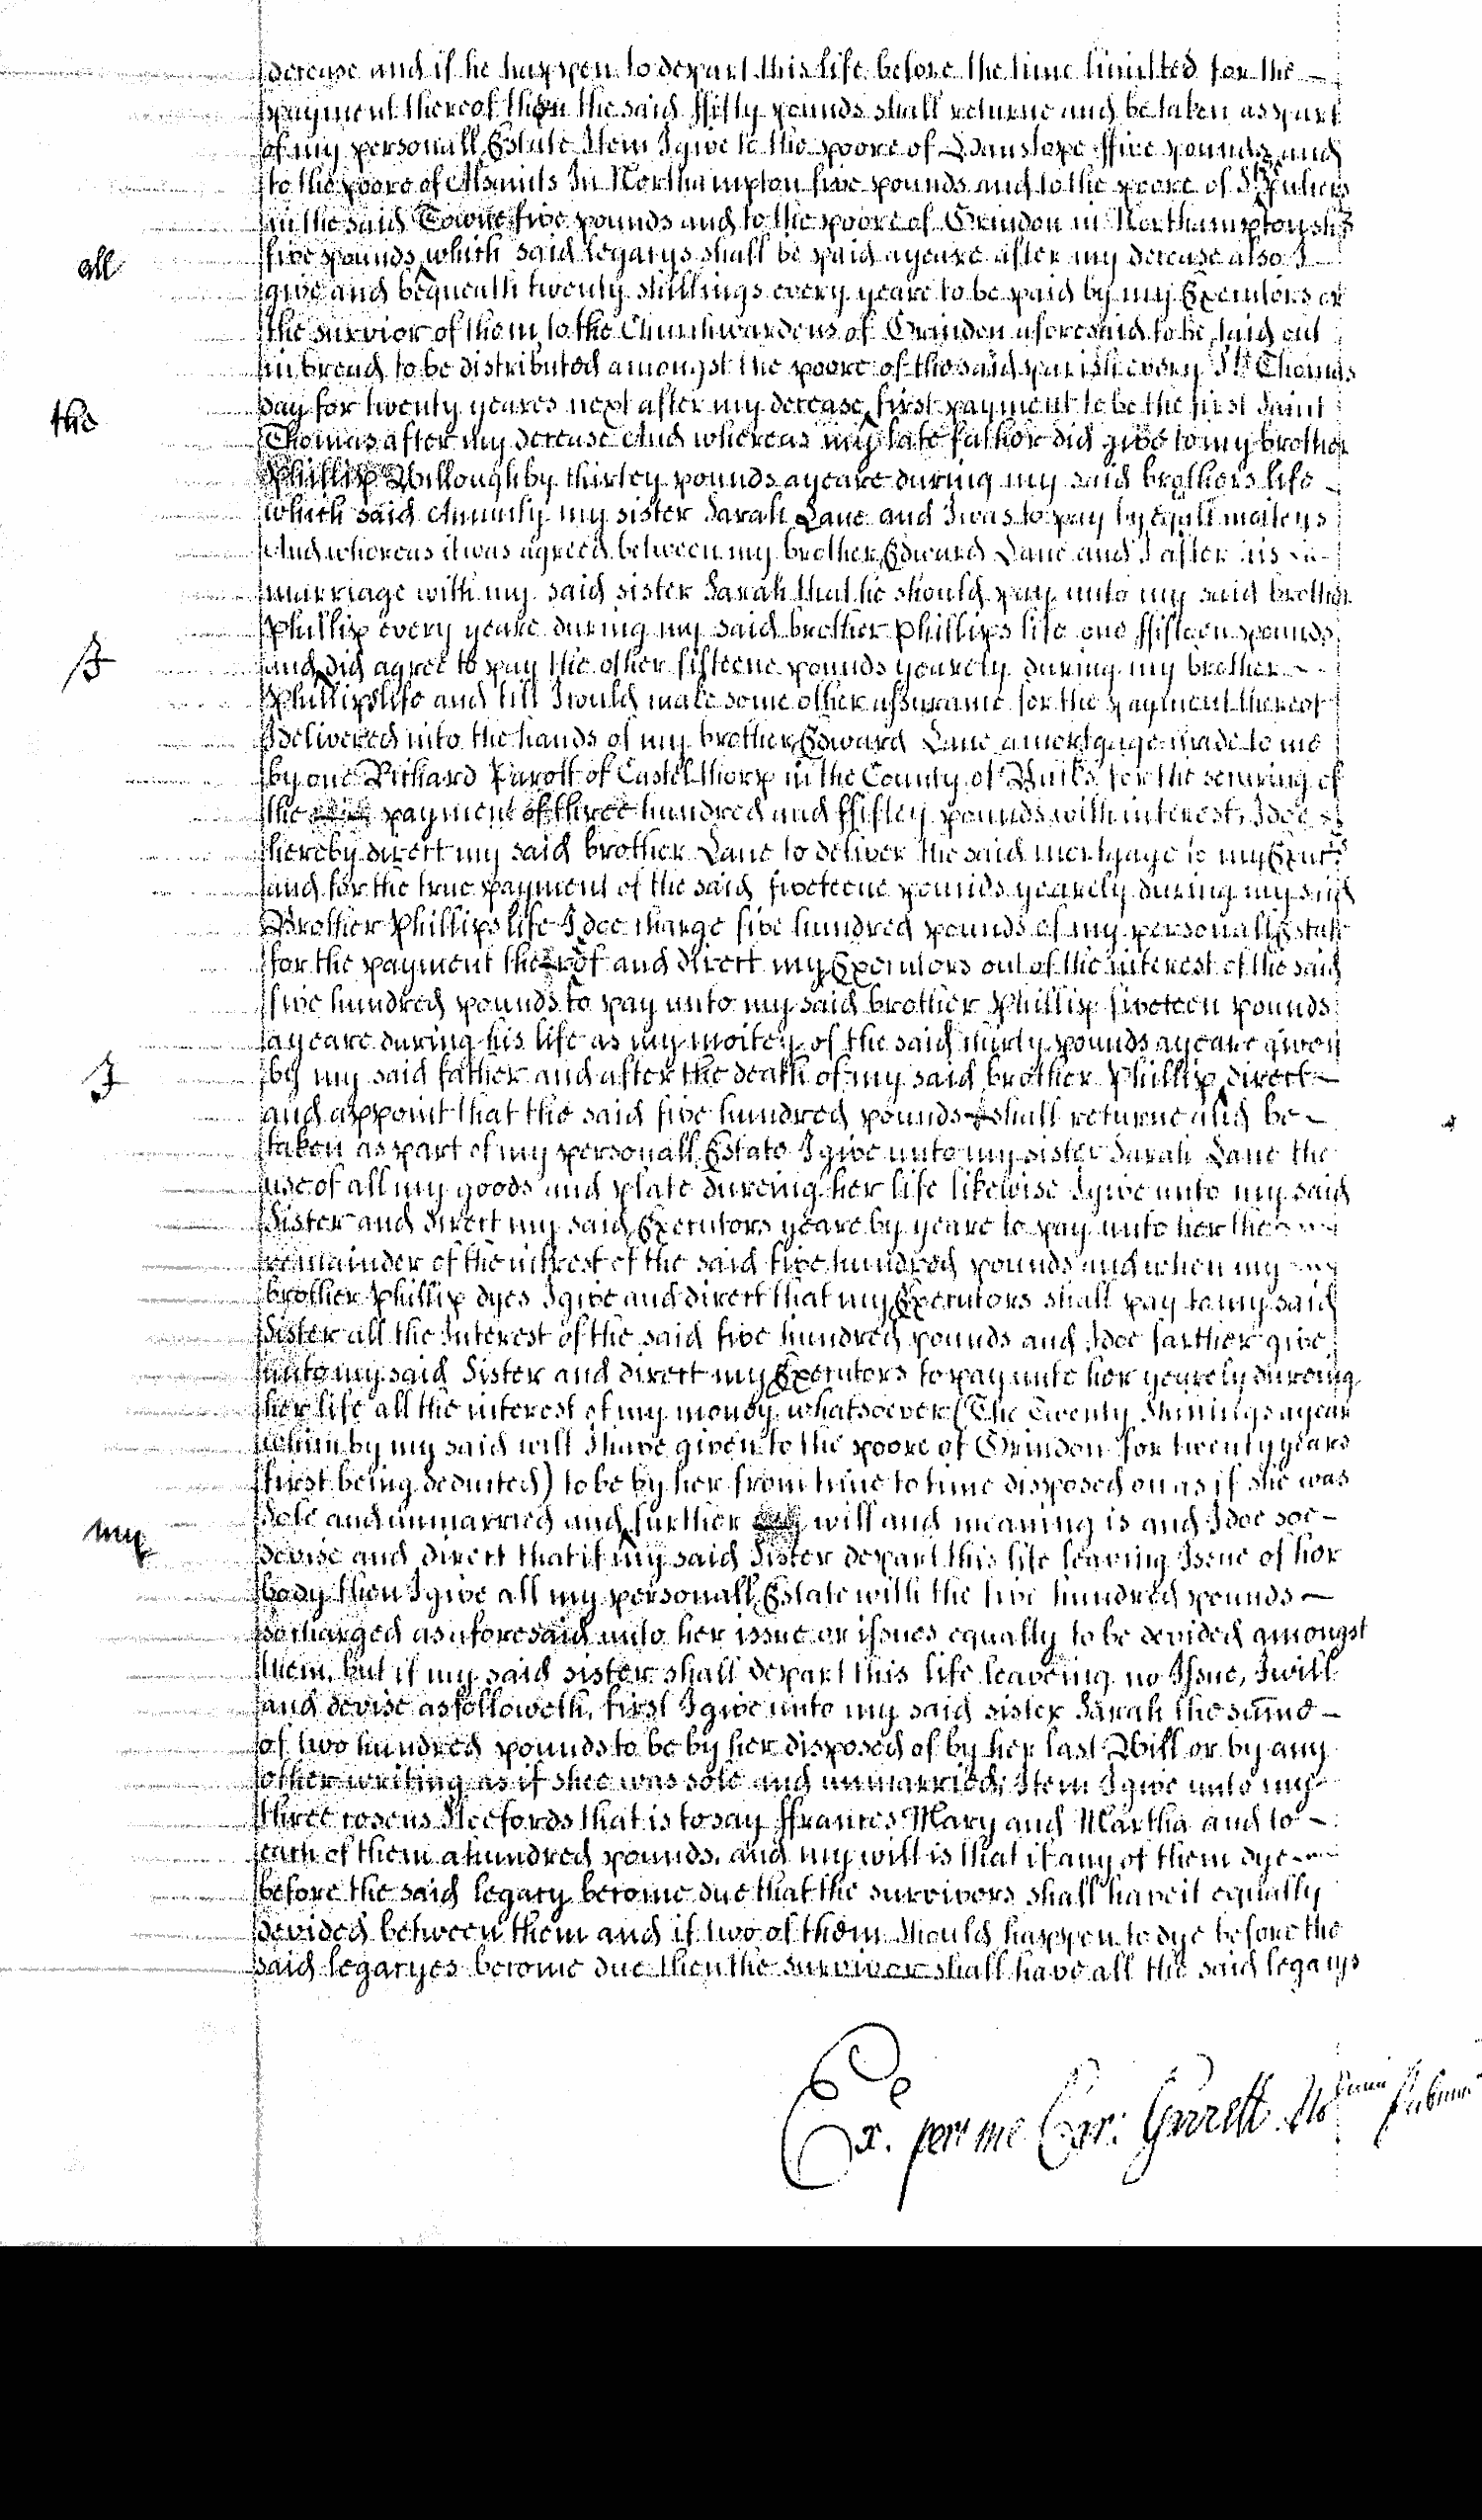 decease and if he happen to depart this life before the time limitted for the
payment thereof then the said ffifty pounds shall returne and be taken as part
of my personall Estate Item I give to the poore of Hanslope ffive pounds and
to the poore of Alsaints In Northampton five pounds and to the poore of St
in the said Towne five pounds and to the poore of Grindon in Northamptonshr
all
five pounds which said legacys shall be paid a yeare after my decease also I
give and bequeath twenty shillings every yeare to be paid by my Executors or
the survior of them to the Churchwardens of Grindon aforesaid to be laid out
in bread to be distributed amongst the poore of the said parish every St Thomas
the
day for twenty yeares next after my decease first payment to be the first Saint
Thomas after my decease And whereas my late father did give to my brother
Phillip Willoughby thirtey pounds a yeare during my said brothers life
which said Annuity my sister Sarah Lane and I was to pay by equall moiteys
And whereas it was agreed between my brother Edward Lane and I after his
marriage with my said sister Sarah that he should pay unto my said brother
Phillip every yeare during my said brother Phillips life one ffifteen pounds
I
and did agree to pay the other fifteene pounds yearely during my brother
Phillips life and till I would make some other assurance for the payment thereof
I delivered into the hands of my brother Edward Lane a mortgage made to me
by one Richard Parott of Castelthorp in the County of Bucks for the securing of
the payment of three hundred and ffiftey pounds with interest, I doe
hereby direct my said brother Lane to deliver the said mortgage to my Exutrs
and for the true payment of the said fiveteene pounds yearely during my said
Brother Phillips life I doe charge five hundred pounds of my personall Estate
for the payment thereof and direct my Executors out of the interest of the said
five hundred pounds to pay unto my said brother Phillip fiveteen pounds
a yeare during his life as my moitey of the said thirty pounds a yeare given
I
by my said father and after the death of my said brother Phillip direct
and appoint that the said five hundred pounds shall returne and be
taken as part of my personall Estate I give unto my sister Sarah Lane the
use of all my goods and plate dureing her life likewise I give unto my said
Sister and direct my said Executors yeare by yeare to pay unto her the
remainder of the intrest of the said five hundred pounds and when my
brother Phillip dyes I give and direct that my Executors shall pay to my said
Sister all the Interest of the said five hundred pounds and I doe farther give
unto my said Sister and direct my Executors to pay unto her yearely dureing
her life all the interest of my money whatsoever (The Twenty Shillings a year
which by my said will I have given to the poore of Grindon for twenty years
first being deducted) to be by her from time to time disposed on as if she was
my
Sole and unmarried and further will and meaning is and I doe soe
devise and direct that if my said Sister depart this life leaving Issue of her
body then I give all my personall Estate with the five hundred pounds
so charged as aforesaid unto her issue or issues equally to be devided amongst
them, but if my said sister shall depart this life leaveing no Issue, I will
and devise as followeth, first I give unto my said sister Sarah the sume
of two hundred pounds to be by her disposed of by her last Will or by any
other writing as if shee was sole and unmarried, Item I give unto my
three cosens Neefords that is to say ffrances Mary and Martha and to
each of them a hundred pounds, and my will is that if any of them dye
before the said legacy become due that the survivors shall have it equally
devided between them and if two of them should happen to dye before the
said legacyes become due then the survivor shall have all the said legacys
Ex. per me Car: Garrett